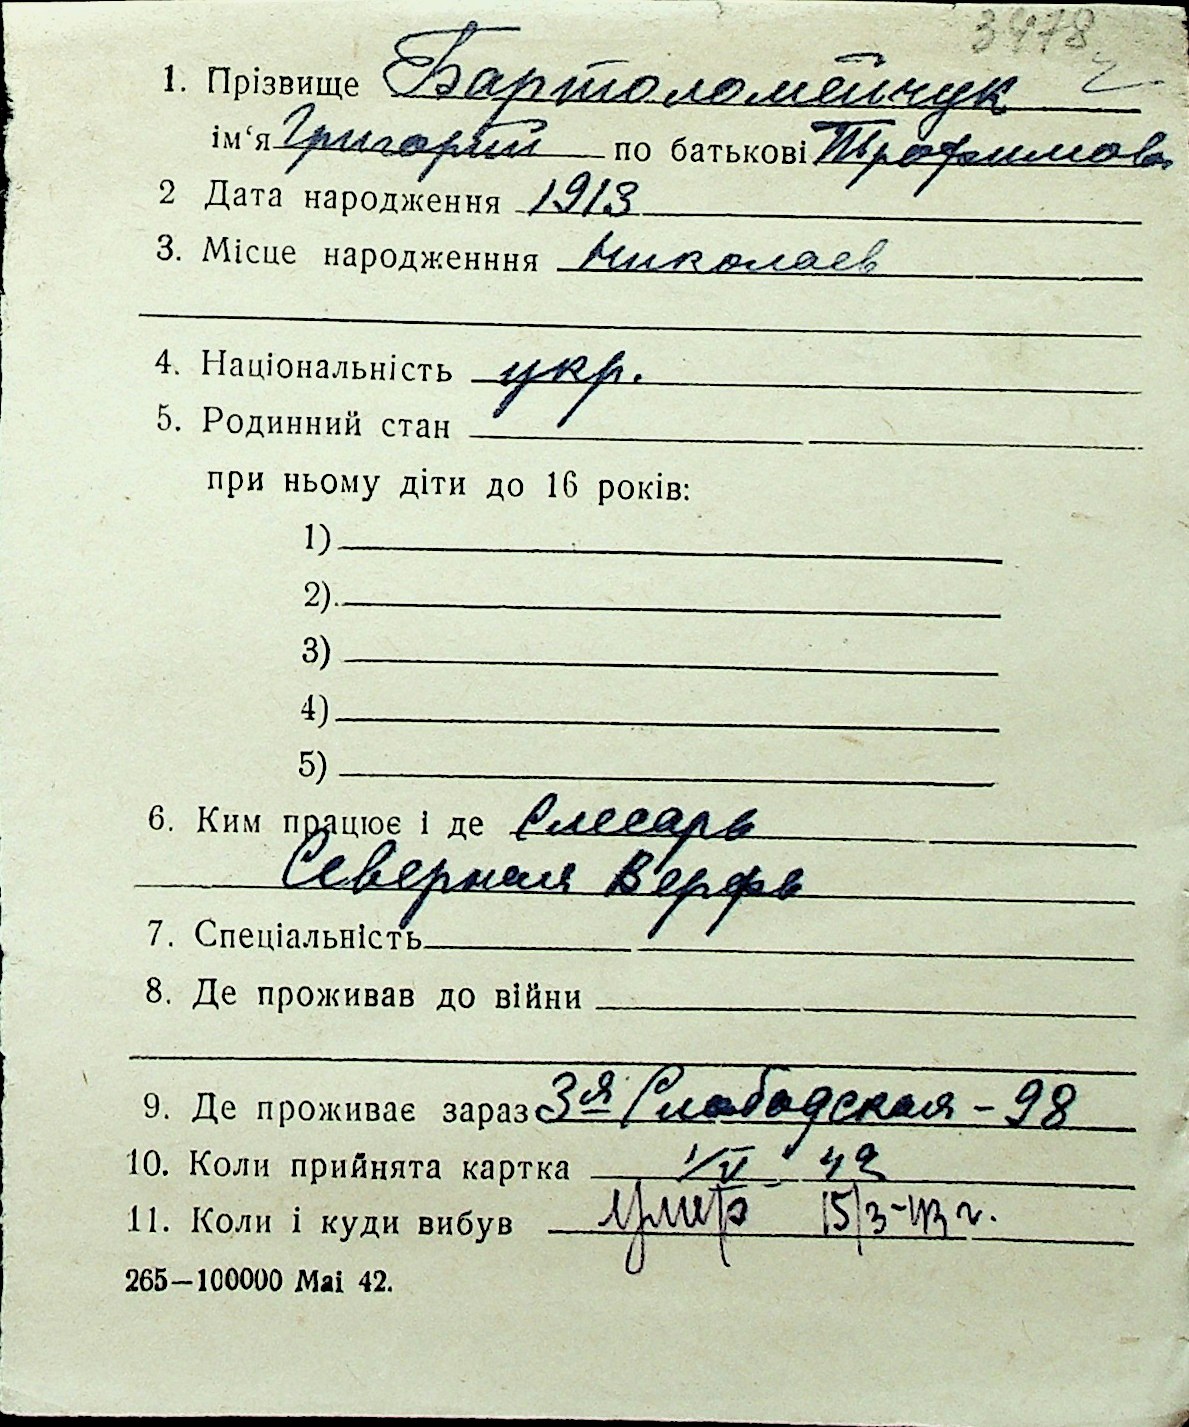 3478
1. Прізвище Бартоломейчук
ім‘я Григорий по батькові Трофимов.
2 Дата народження 1913
3. Місце народженння Николаев
4. Національність укр.
5. Родинний стан
при ньому діти до 16 років:
1)
2).
3)
4)
5)
6. Ким працює і де Слесарь
Северная Верфь
7. Спеціальність
8. Де проживав до війни
9. Де проживає зараз 3я Слободская - 98
10. Коли прийнята картка 1/V 42
11. Коли і куди вибув умер 15/3-43 г.
265—100000 Маі 42.